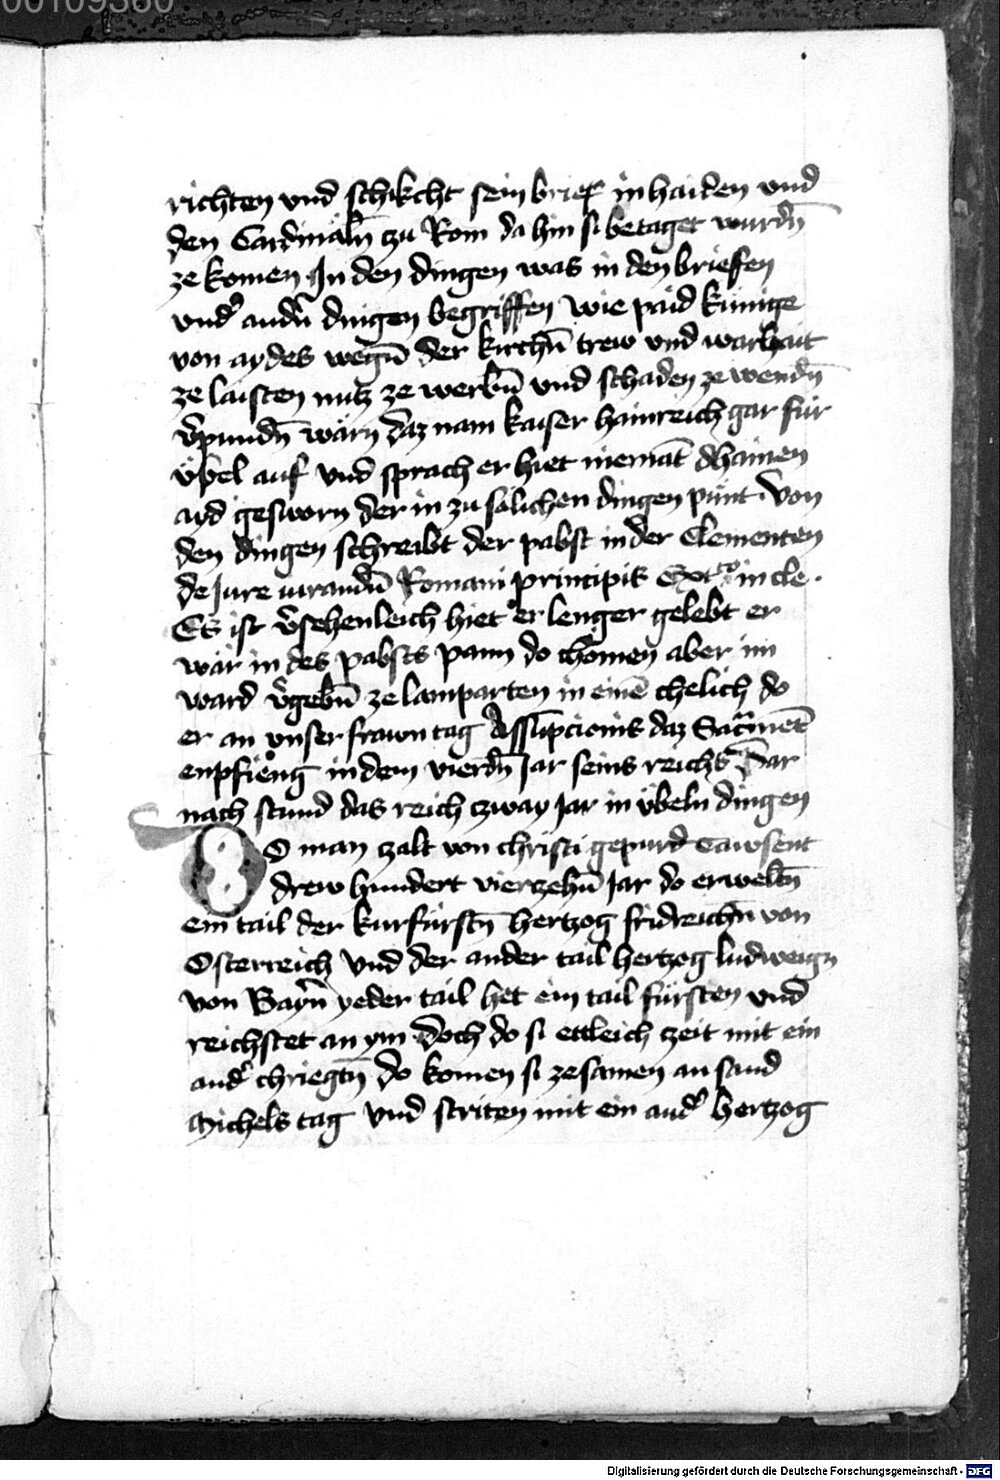 00109360
richten vnd schikcht sein brief in haiden vnd
den Cardinäln̄ czu Rom da hin si betaget wurdn̄
ze komen In den dingen was in den briefen
vnd' andn̄ dingen begriffen wie paid künige
von aydes wegn̄ der kirchn̄ trew vnd warhait
ze laisten nutz ze werbn̄ vnd schaden ze wendn̄
v̄pundn̄ wärn daz nam kaiser hainreich gar für
v̈bel auf vnd sprach er hiet niemāt dhainen
ayd gesworn der in zu sölichen dingen pünt von
den dingen schreibt der pabst in der Clementen
de Jure iurandū Romani principis in cle .
Es ist v̄sehenleich hiet er lenger gelebt er
wär in des pabsts pann do chömen aber im
ward v̄gebn̄ ze lamparten in einē chelich do
er an vnser frawn tag Assūpcionis daz Sac̄mēt
enpfieng in dem vierdn̄ Jar seins reichs Dar
nach stund das reich czway Jar in v̈beln dingen
DO man czalt von christi gepurd tawsent
drew hundert vierzehn̄ Jar do erweltn̄
ein tail der kurfürstn̄ hertzog fridreichn̄ von
Osterreich vnd der ander tail hertzog ludweign
von Bayr̄n yeder tail het ein tail fürsten vnd
reichstet an ym doch do si ettleich czeit mit ein
and' chriegtn̄ do komen si zesamen an sand
Michels tag vnd striten mit ein and' hertzog
Digitalisierung gefördert durch die Deutsche Forschungsgemeinschaft - DFG